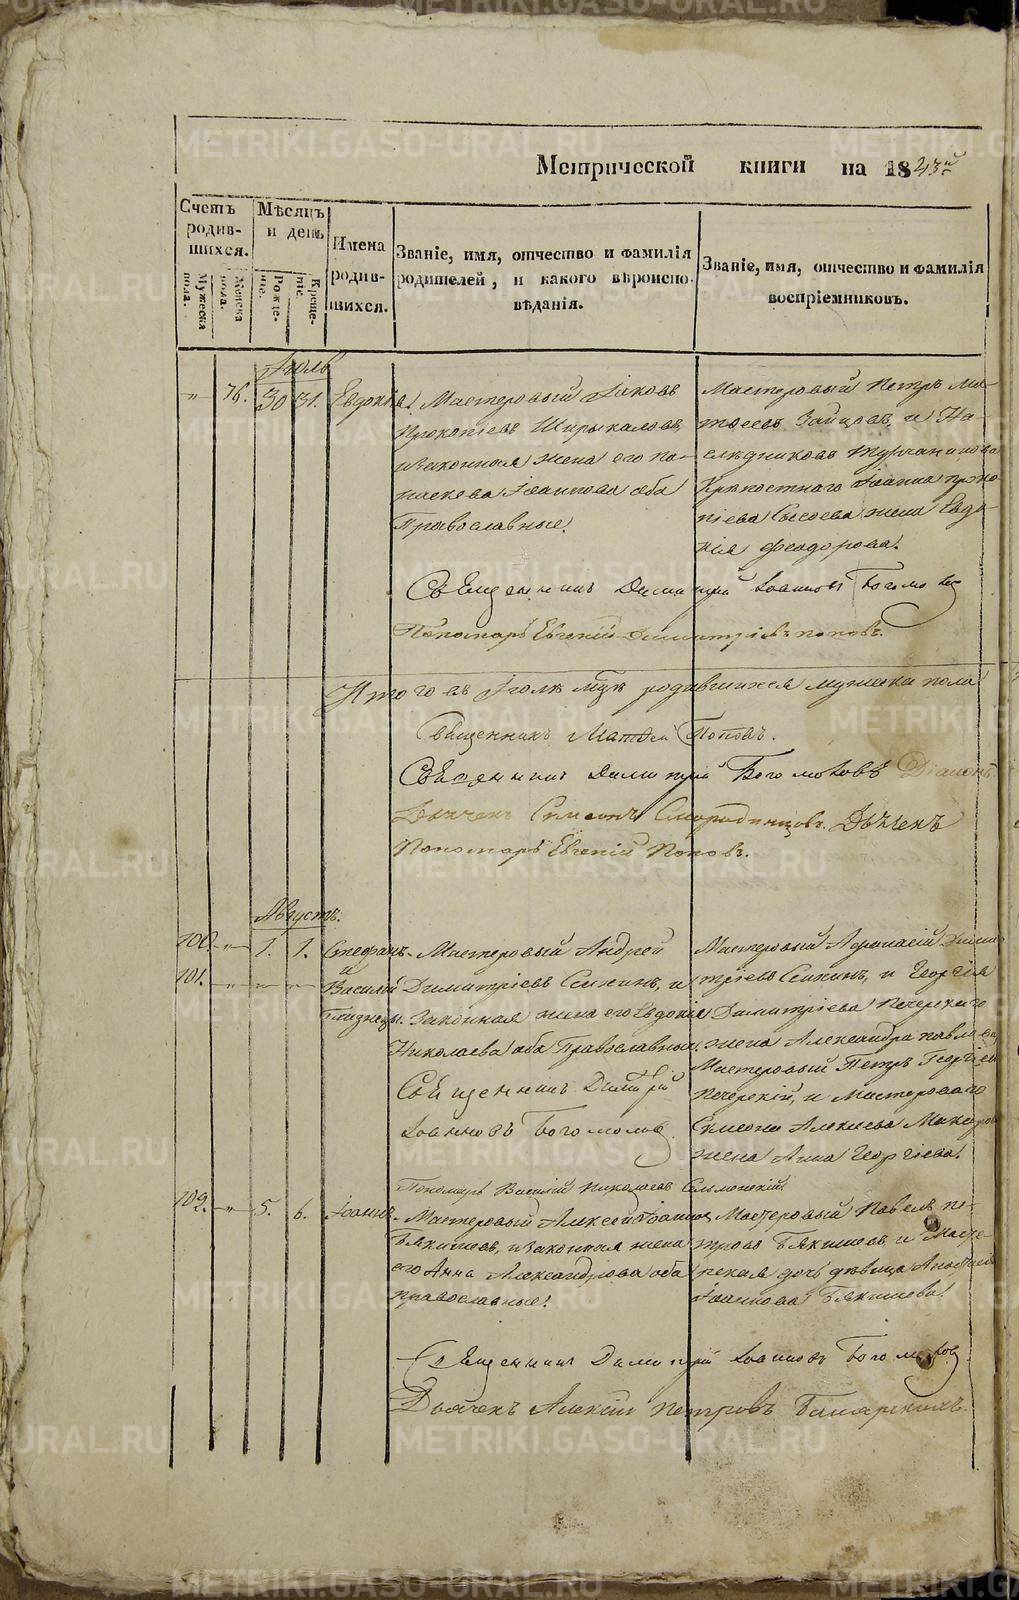 Метрической книги на 1843й
Счетъ родив-шихся.
Мужеска пола.
Женска пола.
Мѣсяцъ и день
Рожде-ніе.
Креще-ніе.
Имена родив-шихся.
Званіе, имя, отчество и фамилія
родителей, и какого вѣроиспо-
вѣданія.
Званіе, имя, отчество и фамилія
воспріемниковъ.
Іюль
" 76. 30 31. Евдокія. Мастеровый Іаковъ
Прокопіевъ Ширыкаловъ,
и законная жена его Па-
раскева Іоаннова оба
Православные.
Мастеровый Петръ Ма-
тѳеевъ Зайцовъ, и На-
слѣдниковъ Турчанинова
Крѣпостнаго Іоанна Проко-
піева Сысоева жена Евдо-
кія Феодорова.
Священникъ Димитрій Іоанновъ Богомоловъ
Пономарь Евгеній Димитріевъ Поповъ.
Итого въ Іюлѣ родившихся мужеска пола
Священникъ Матѳей Поповъ.
Священникъ Димитрій Богомоловъ Діаконъ
Дьячекъ Симеонъ Смородинцовъ. Дьячекъ
Пономарь Евгеній Поповъ.
Августъ.
100. " 1. 1. Стефанъ
101. " " " и Василій
близнецы.
Мастеровый Андрей
Димитріевъ Сенкинъ, и
Законная жена его Евдокія
Николаева оба Православные.
Мастеровый Афанасій Дими-
тріевъ Сенкинъ, и Георгія
Димитріева Печерскаго
жена Александра Павлова,
Мастеровый Петръ Георгіевъ
Печерскій, и Мастероваго
Симеона Алексіева Макарова
жена Анна Георгіева.
Священникъ Димитрій
Іоанновъ Богомоловъ.
Пономарь Василій Николаевъ Сельменскій.
102. " 5. 6. Іоаннъ. Мастеровый Алексій Іоанновъ
Бякишевъ, и законная жена
его Анна Александрова оба
православные.
Мастеровый Павелъ Пе-
тровъ Бякишевъ, и Масте-
рская дочь дѣвица Анастасія
Іоаннова Бякишева.
Священникъ Димитрій Іоанновъ Богомоловъ
Дьячекъ Алексій Петровъ
METRIKI.GASO-URAL.RU